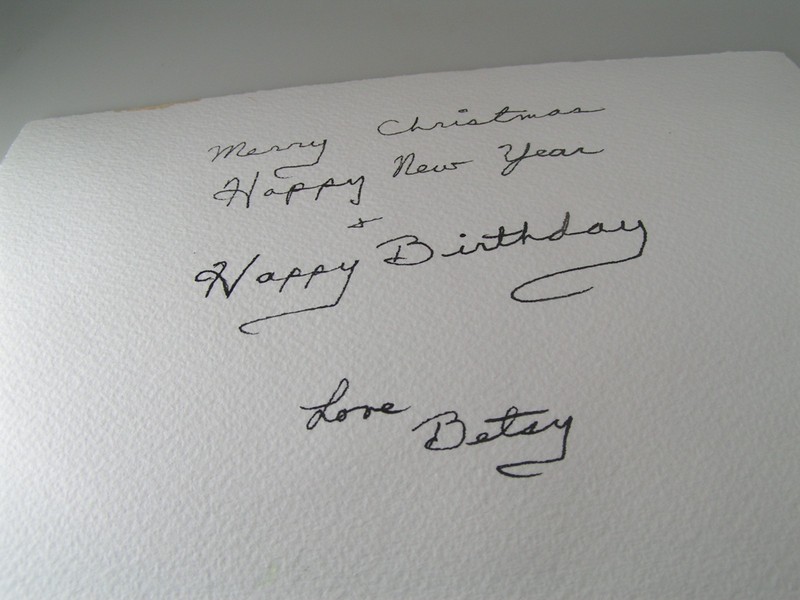 Merry Christmas
Happy New Year
+
Happy Birthday
Love Betsy